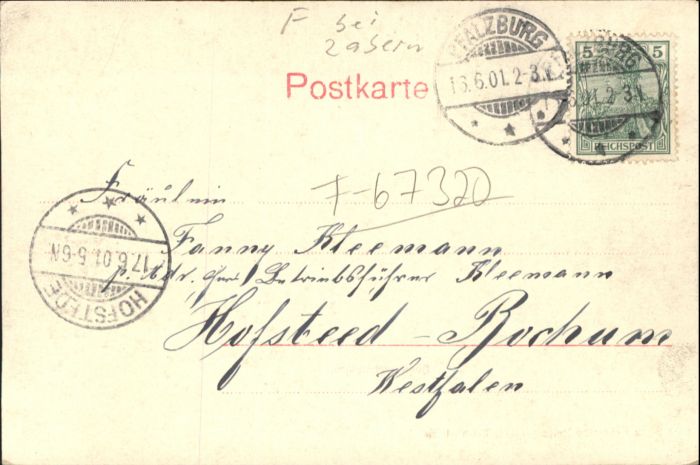 F bei
Zabern
PFALZBURG
16.6.01.2-3N.
5 5
REICHSPOST
Postkarte
F-67320
Fräulein
Fanny Kleemann
p. Adr. Betriebsführer Kleemann
Hofsteed-Bochum
Westfalen
HOFSTEDE
17.6.01.5-6N.